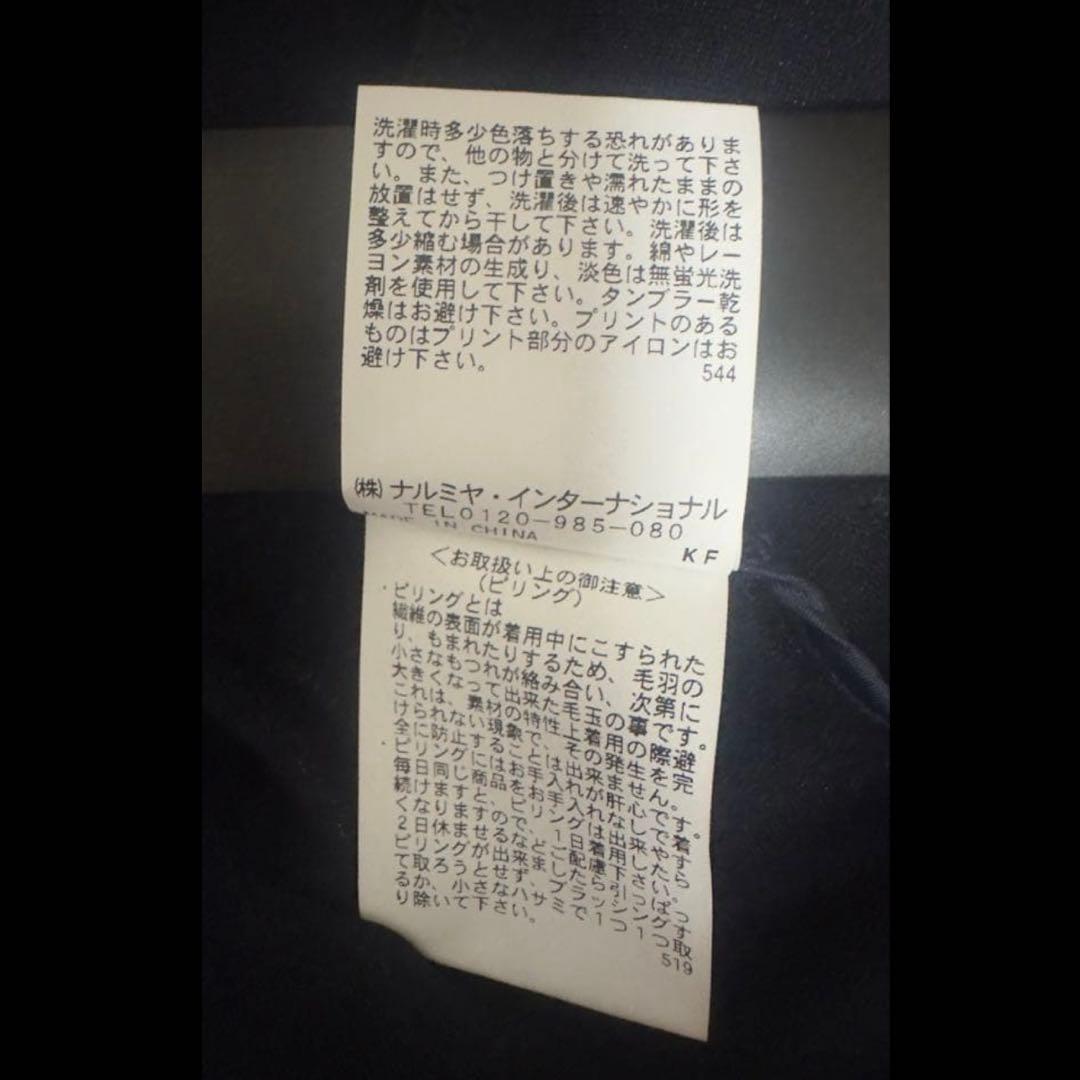 洗濯時多少色落ちする恐れがありま
すので、他の物と分けて洗って下さ
い。また、つけ置きや濡れたままの
放置はせず、洗濯後は速やかに形を
整えてから干して下さい。洗濯後は
多少縮む場合があります。綿やレー
ヨン素材の生成り、淡色は無蛍光洗
剤を使用して下さい。タンブラー乾
燥はお避け下さい。プリントのある
ものはプリント部分のアイロンはお
避け下さい。
544
(株)ナルミヤ・インターナショナル
TEL0120-985-080
MADE IN CHINA
KF
<お取扱い上の御注意>
(ピリング)
・ピリングとは
繊維の表面が着用中にこすられた
り、もまれたりするため、毛羽の
小さなもつれが絡み合い、次第に
大きくなって出来た毛玉の事です。
これは、素材の特性上
けられない現象で、
全に防止することは出来ません。
・ピリング
毎日同じ商品を
続けますと、
くなります
2日休ませる
ピリングが
り除いて下さい。
519